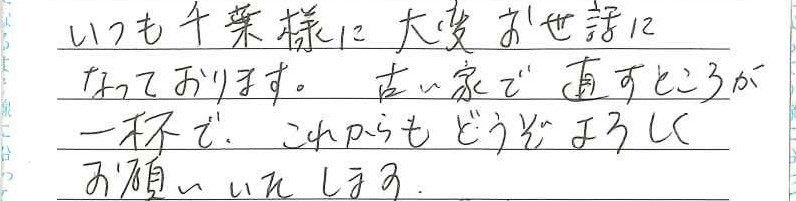 いつも千葉様に 大変お世話に
なっております。 古い家で 直すところが
一杯で. これからも どうぞ よろしく
お願い いたします.